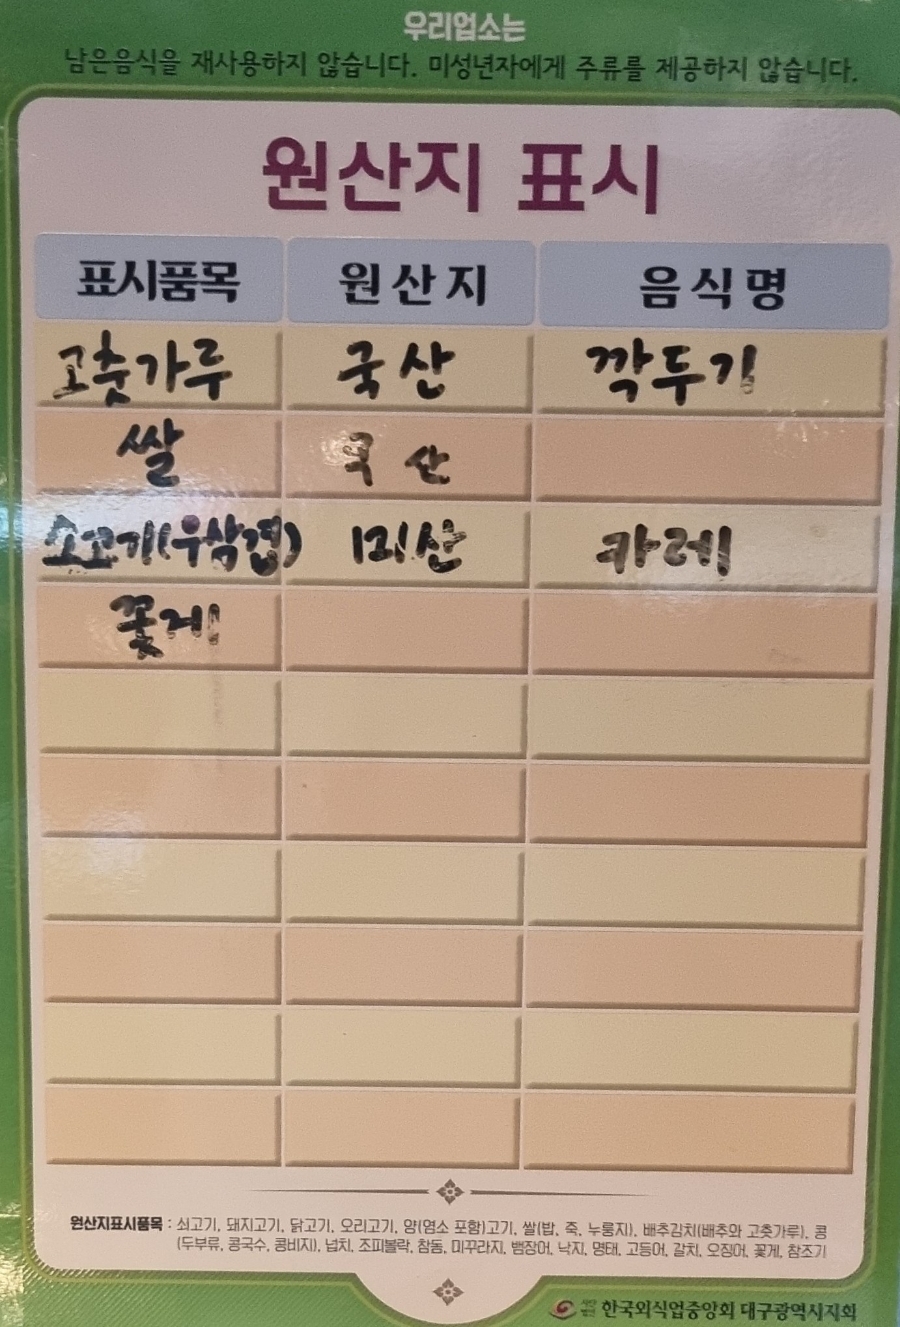 우리업소는
남은음식을 재사용하지 않습니다. 미성년자에게 주류를 제공하지 않습니다.
원산지 표시
표시품목 원산지 음식명
고춧가루 국산 깍두기
쌀 국산
소고기(우삼겹) 미산 카레
꽃게
원산지표시품목 : 쇠고기, 돼지고기, 닭고기, 오리고기, 양(염소 포함)고기, 쌀(밥, 죽, 누룽지), 배추김치(배추와 고춧가루), 콩
(두부류, 콩국수, 콩비지), 넙치, 조피볼락, 참돔, 미꾸라지, 뱀장어, 낙지, 명태, 고등어, 갈치, 오징어, 꽃게, 참조기
한국외식업중앙회 대구광역시지회